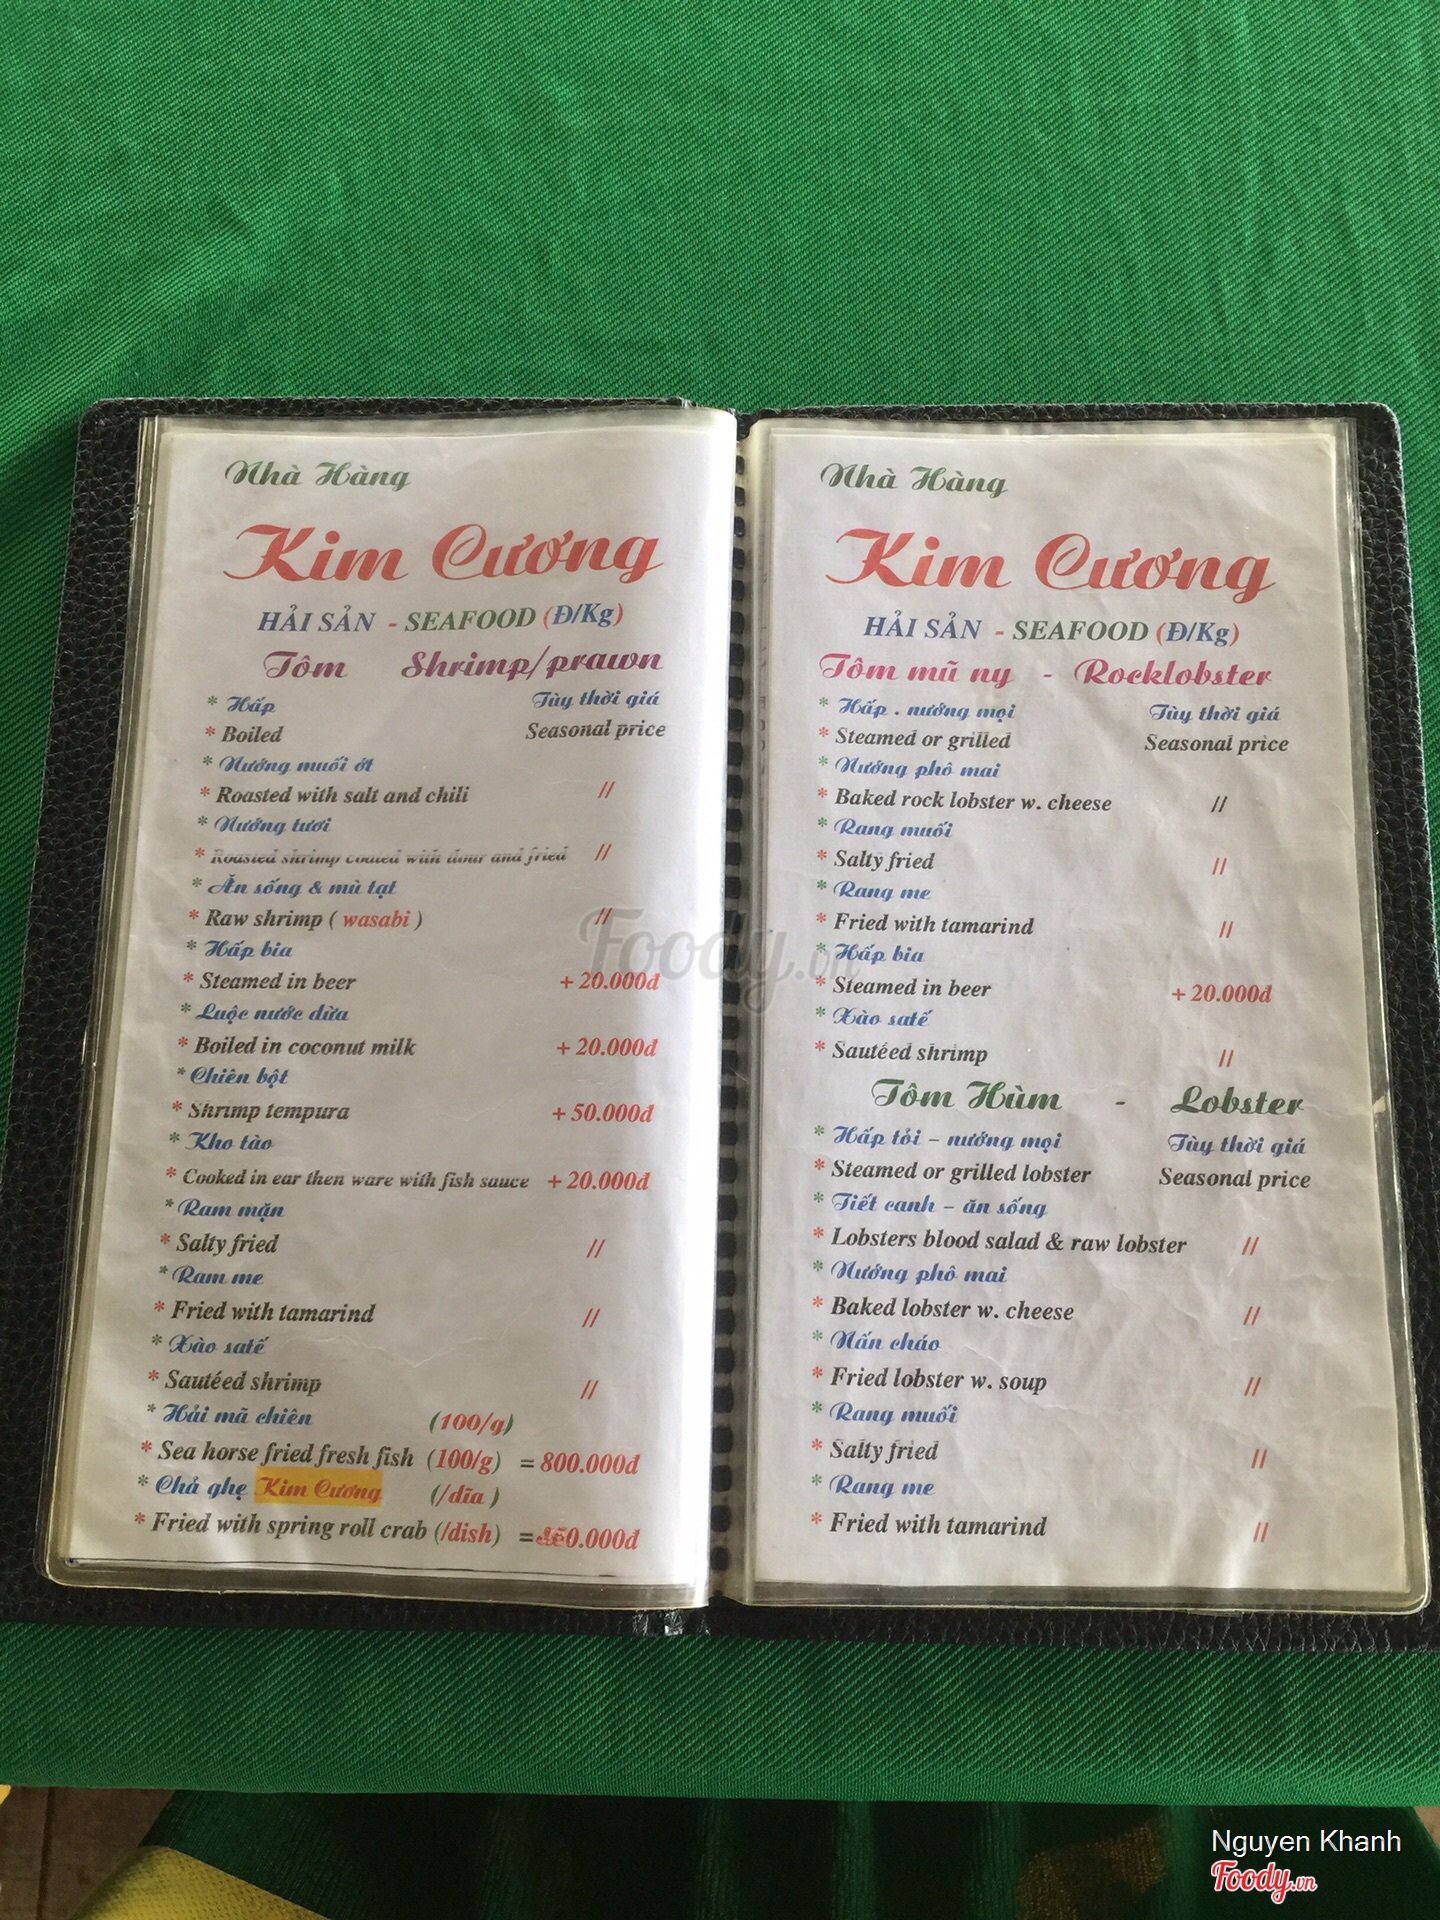 Nhà Hàng
Kim Cương
HẢI SẢN - SEAFOOD (Đ/Kg)
Tôm Shrimp/prawn
* Hấp Tùy thời giá
* Boiled Seasonal price
* Nướng muối ớt
* Roasted with salt and chili //
* Nướng tươi
* Roasted shrimp coated with dour and fried //
* Ăn sống & mù tạt
* Raw shrimp ( wasabi ) //
* Hấp bia
* Steamed in beer + 20.000đ
* Luộc nước dừa
* Boiled in coconut milk + 20.000đ
* Chiên bột
* Shrimp tempura + 50.000đ
* Kho tào
* Cooked in ear then ware with fish sauce + 20.000đ
* Ram mặn
* Salty fried //
* Ram me
* Fried with tamarind //
* Xào satế
* Sautéed shrimp //
* Hải mã chiên (100/g)
* Sea horse fried fresh fish (100/g) = 800.000đ
* Chả ghẹ Kim Cương (/dĩa )
* Fried with spring roll crab (/dish) =
Nhà Hàng
Kim Cương
HẢI SẢN - SEAFOOD (Đ/Kg)
Tôm mũ ny - Rocklobster
* Hấp . nướng mọi Tùy thời giá
* Steamed or grilled Seasonal price
* Nướng phô mai
* Baked rock lobster w. cheese //
* Rang muối
* Salty fried //
* Rang me
* Fried with tamarind //
* Hấp bia
* Steamed in beer + 20.000đ
* Xào satế
* Sautéed shrimp //
Tôm Hùm - Lobster
* Hấp tỏi – nướng mọi Tùy thời giá
* Steamed or grilled lobster Seasonal price
* Tiết canh – ăn sống
* Lobsters blood salad & raw lobster //
* Nướng phô mai
* Baked lobster w. cheese //
* Nấn cháo
* Fried lobster w. soup //
* Rang muối
* Salty fried //
* Rang me
* Fried with tamarind //
Foody.vn
Nguyen Khanh
Foody.vn